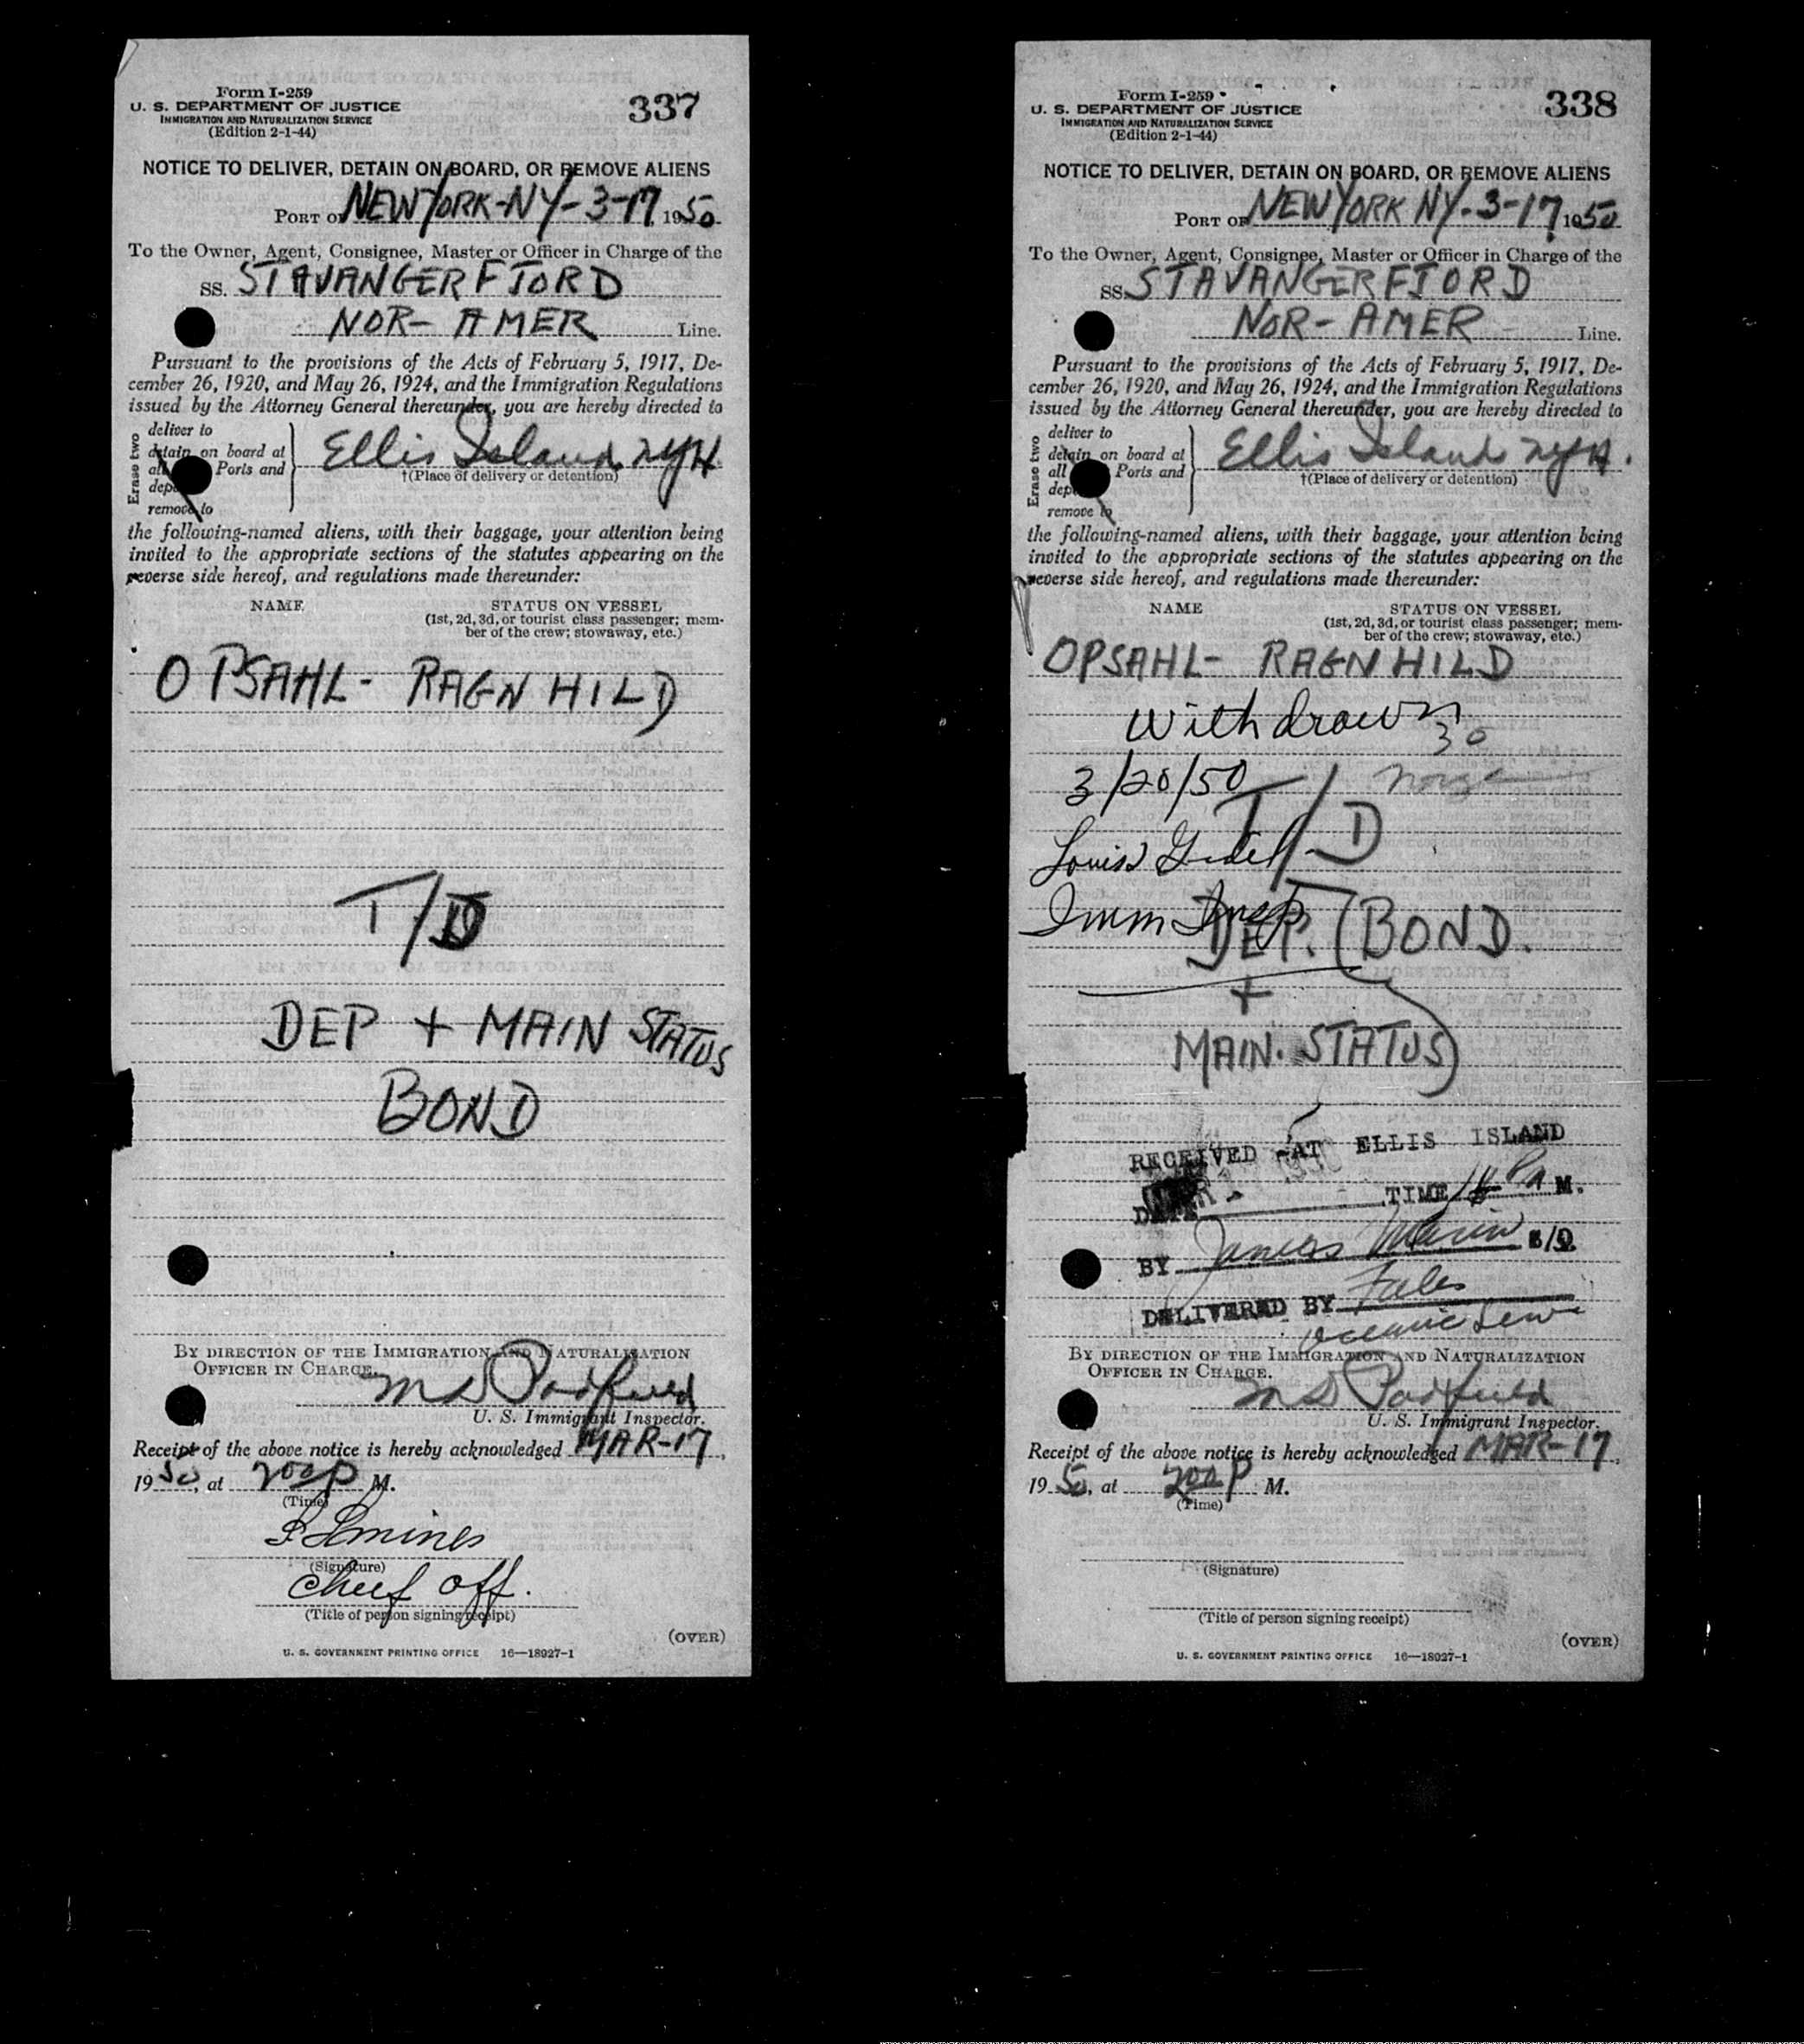 Form I-259
U. S. DEPARTMENT OF JUSTICE
IMMIGRATION AND NATURALIZATION SERVICE
(Edition 2-1-44)
337
NOTICE TO DELIVER, DETAIN ON BOARD, OR REMOVE ALIENS
PORT OF NEW YORK-NY-3-17, 1950.
To the Owner, Agent, Consignee, Master or Officer in Charge of the
SS. STAVANGERFJORD
NOR-AMER Line.
Pursuant to the provisions of the Acts of February 5, 1917, De-
cember 26, 1920, and May 26, 1924, and the Immigration Regulations
issued by the Attorney General thereunder, you are hereby directed to
Erase two
deliver to
detain on board at
all Ports and
remove to
Ellis Island, NYH
†(Place of delivery or detention)
the following-named aliens, with their baggage, your attention being
invited to the appropriate sections of the statutes appearing on the
reverse side hereof, and regulations made thereunder:
NAME
STATUS ON VESSEL
(1st, 2d, 3d, or tourist class passenger; mem-
ber of the crew; stowaway, etc.)
OPSAHL- RAGNHILD
T/D
DEP + MAIN STATUS
BOND
BY DIRECTION OF THE IMMIGRATION AND NATURALIZATION
OFFICER IN CHARGE.
M D Padfield
U. S. Immigrant Inspector.
Receipt of the above notice is hereby acknowledged MAR-17,
1950, at 200 P M.
(Time)
(Signature)
Chief Off.
(Title of person signing receipt)
(OVER)
U. S. GOVERNMENT PRINTING OFFICE 16—18927-1
Form I-259
U. S. DEPARTMENT OF JUSTICE
IMMIGRATION AND NATURALIZATION SERVICE
(Edition 2-1-44)
338
NOTICE TO DELIVER, DETAIN ON BOARD, OR REMOVE ALIENS
PORT OF NEW YORK NY-3-17, 1950
To the Owner, Agent, Consignee, Master or Officer in Charge of the
SS. STAVANGERFJORD
NOR-AMER Line.
Pursuant to the provisions of the Acts of February 5, 1917, De-
cember 26, 1920, and May 26, 1924, and the Immigration Regulations
issued by the Attorney General thereunder, you are hereby directed to
Erase two
deliver to
detain on board at
all Ports and
remove to
Ellis Island NYH.
†(Place of delivery or detention)
the following-named aliens, with their baggage, your attention being
invited to the appropriate sections of the statutes appearing on the
reverse side hereof, and regulations made thereunder:
NAME
STATUS ON VESSEL
(1st, 2d, 3d, or tourist class passenger; mem-
ber of the crew; stowaway, etc.)
OPSAHL- RAGNHILD
Withdrawn
30
3/20/50
T/D
Louis
Imm Insp
DEP. BOND.
+
MAIN. STATUS
RECEIVED AT ELLIS ISLAND
DATE TIME M.
BY James S/O.
DELIVERED BY
BY DIRECTION OF THE IMMIGRATION AND NATURALIZATION
OFFICER IN CHARGE.
M D Padfield
U. S. Immigrant Inspector.
Receipt of the above notice is hereby acknowledged MAR-17,
1950, at 200 P M.
(Time)
(Signature)
(Title of person signing receipt)
(OVER)
U. S. GOVERNMENT PRINTING OFFICE 16—18927-1